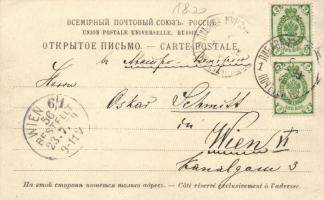 1820
ВСЕМІРНЫЙ ПОЧТОВЫЙ СОЮЗЪ. РОССІЯ.
UNION POSTALE UNIVERSELLE. RUSSIE.
ОТКРЫТОЕ ПИСЬМО. — CARTE POSTALE.
в Австро-Венгрію
Herrn
Oskar Schmitt
in Wien VI
Kanalgasse 3
WIEN 6/1
BESTELLT
9-11 V
На этой сторонѣ пишется только адресъ. — Côté réservé exclusivement à l'adresse.